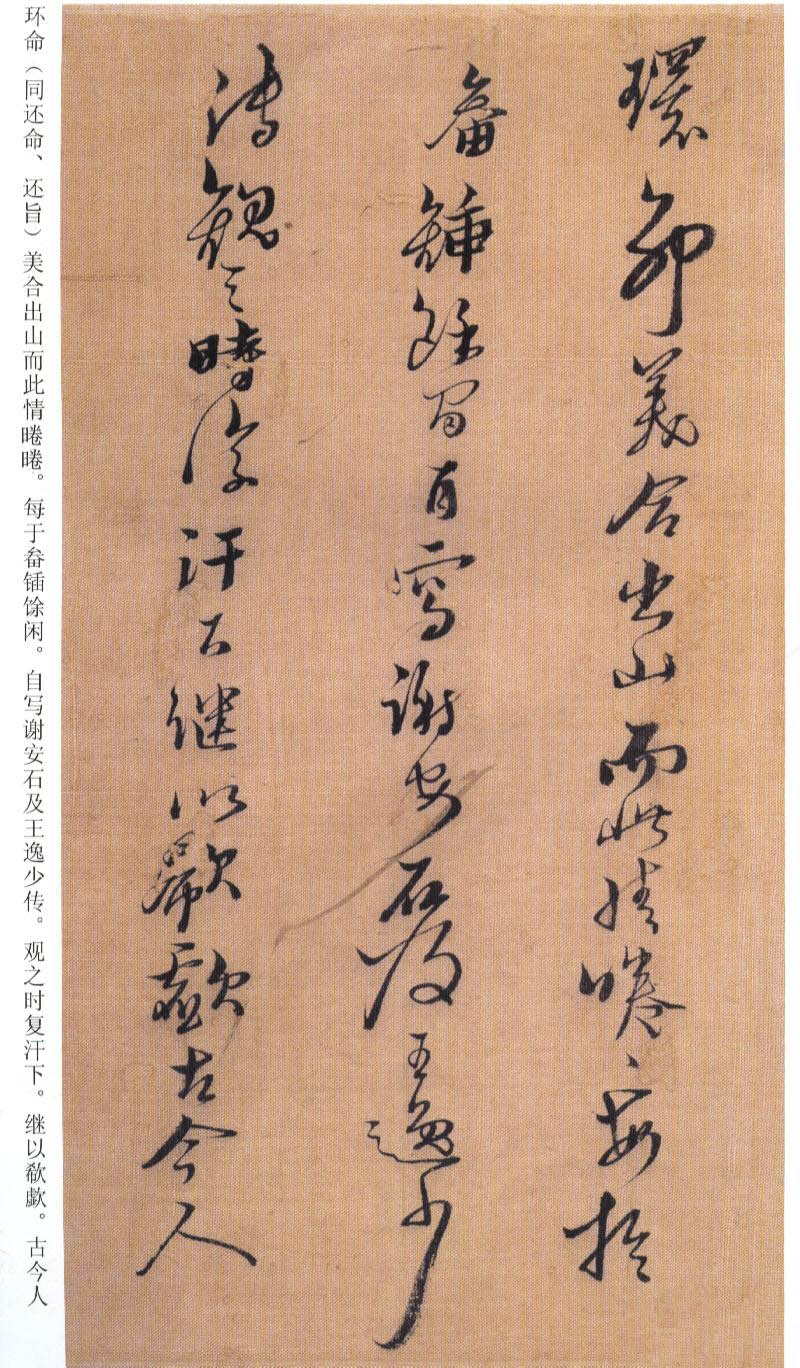 環命美合出山而此情睠〻每於
畚鍤餘閒自寫謝安石及王逸少
傳觀之時復汗下繼以欷歔古今人
环命（同还命、还旨）美合出山而此情睠睠。每于畚锸馀闲。自写谢安石及王逸少传。观之时复汗下。继以欷歔。古今人